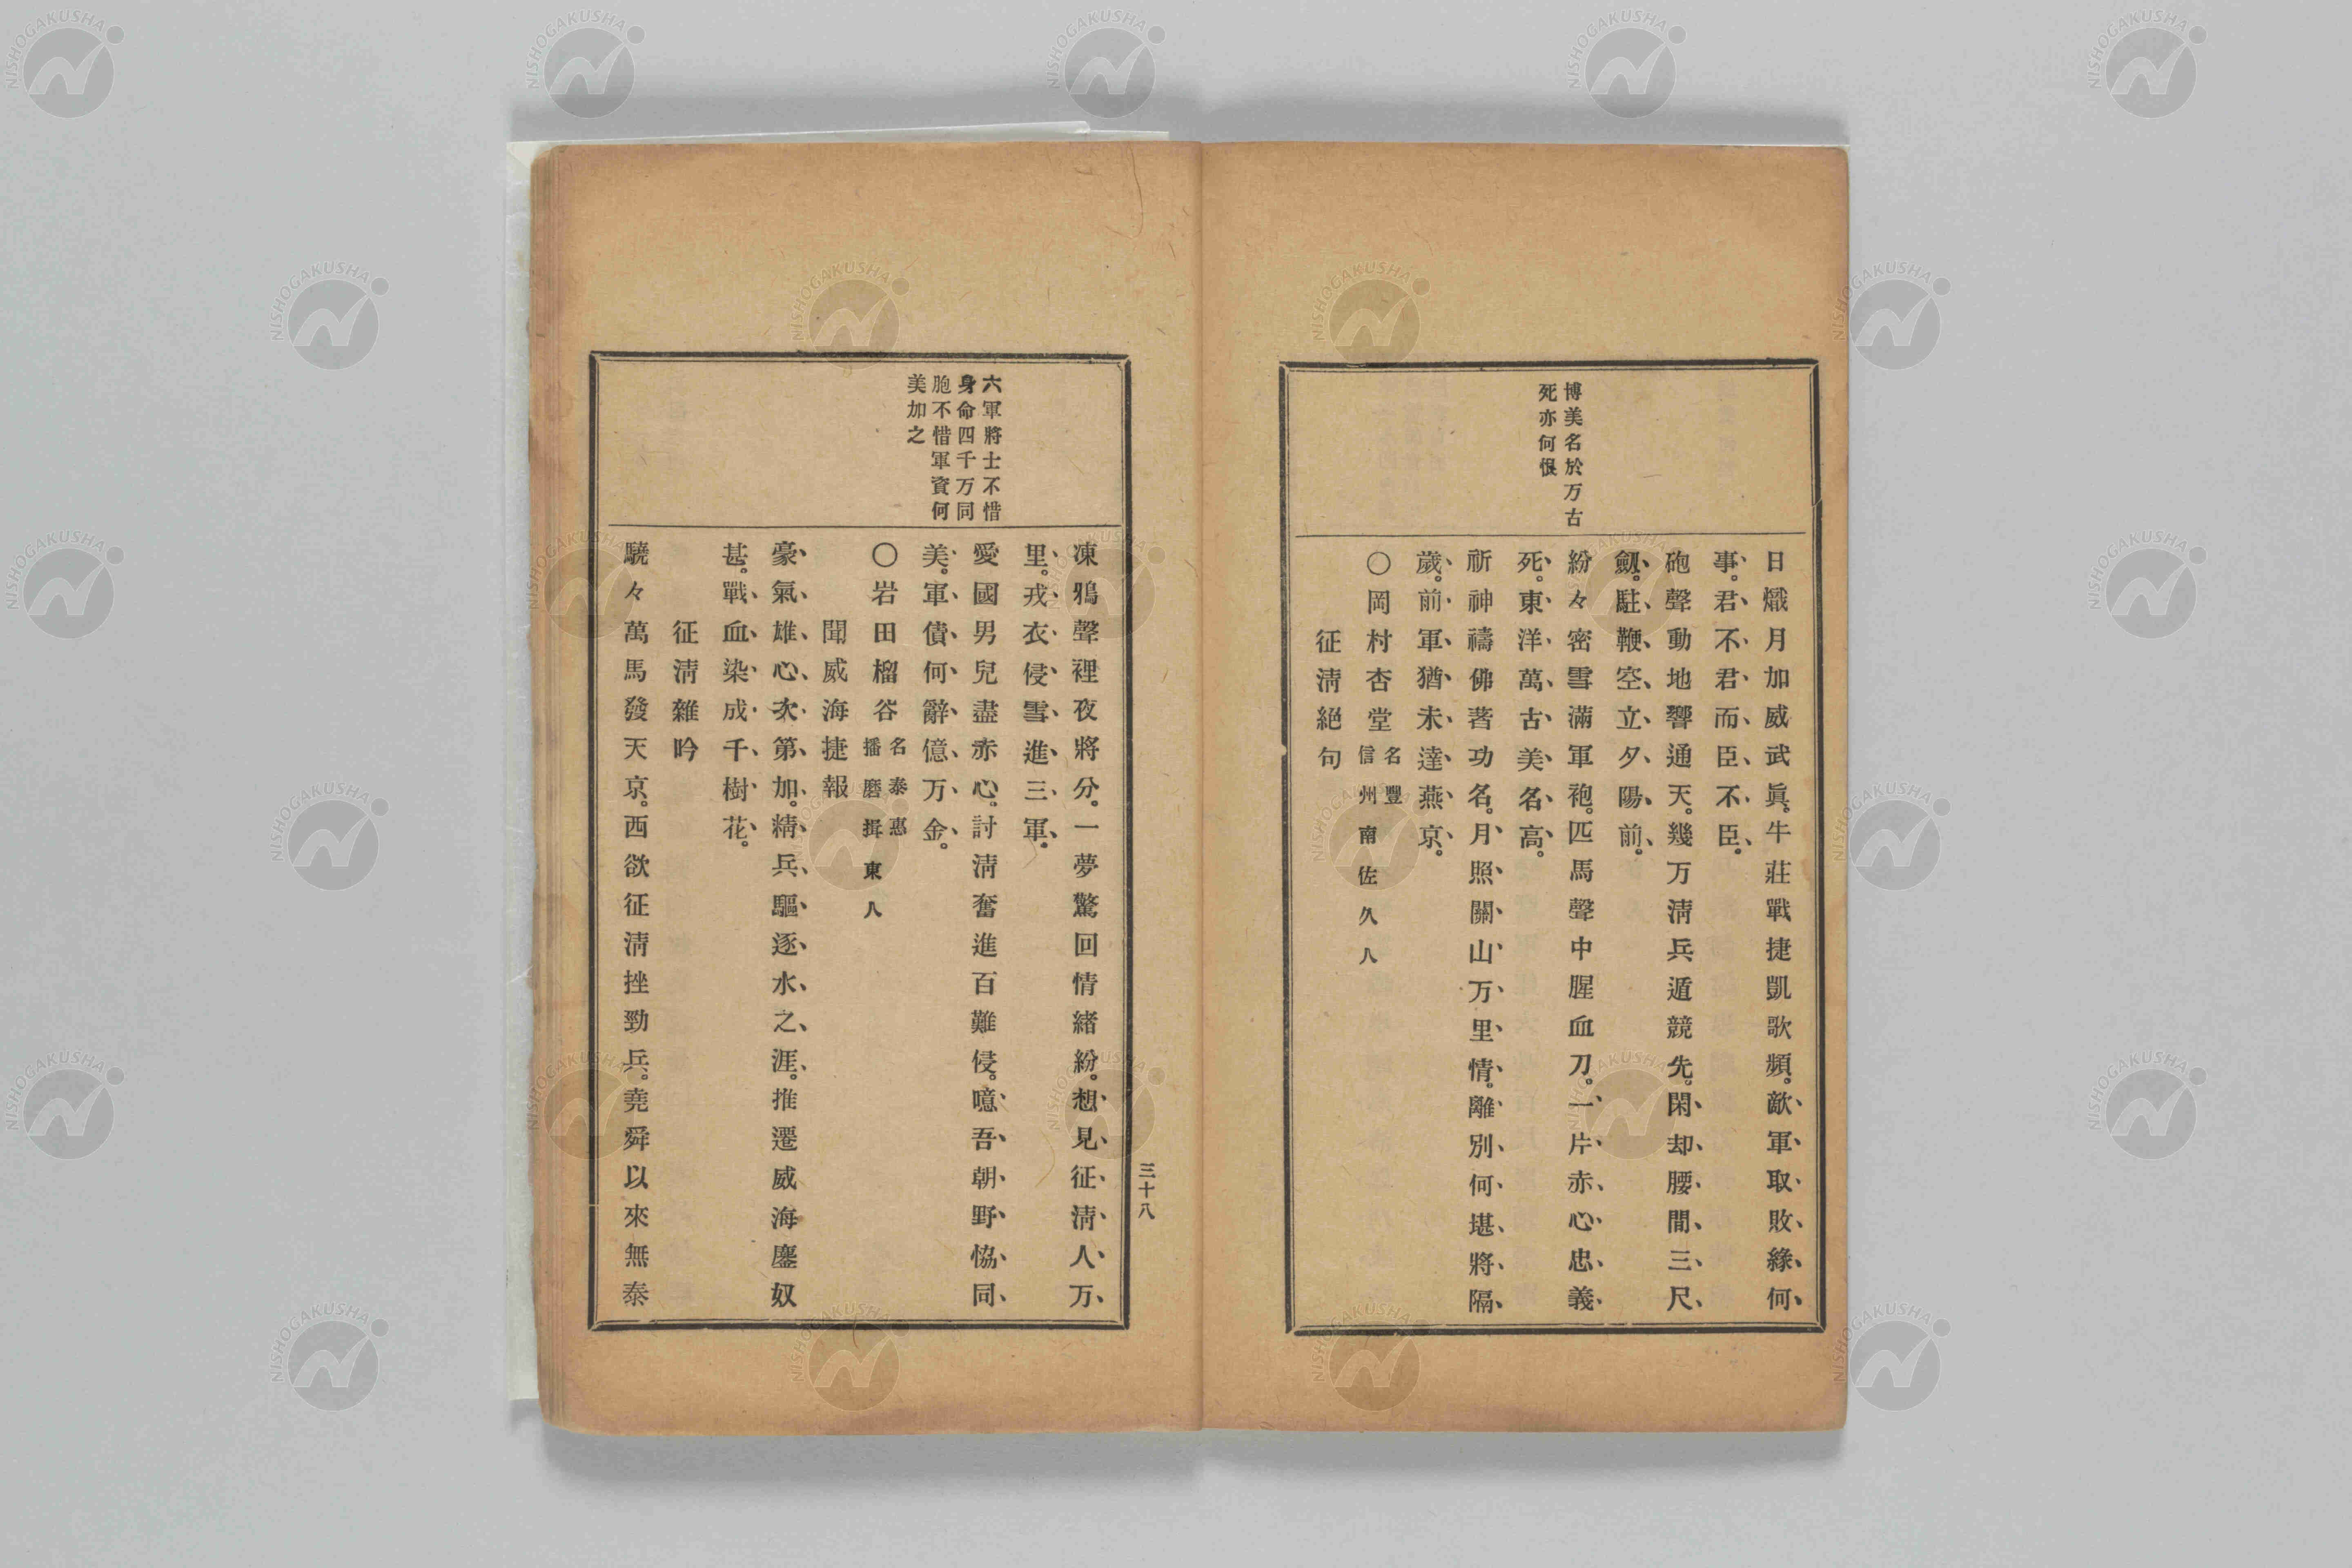 博美名於万古
死亦何恨
日熾月加威武眞。牛莊戰捷凱歌頻。敵軍取敗緣何
事。君不君而臣不臣。
砲聲動地響通天。幾万淸兵遁競先。閑却腰間三尺
劔。駐鞭空立夕陽前。
紛々密雪滿軍袍。匹馬聲中腥血刀。一片赤心忠義
死。東洋萬古美名高。
祈神禱佛著功名。月照關山万里情。離別何堪將隔
歲。前軍猶未達燕京。
〇岡村杏堂 名豐
信州南佐久人
征淸絕句
三十八
六軍將士不惜
身命四千万同
胞不惜軍資何
美加之
凍鴉聲裡夜將分。一夢驚回情緖紛。想見征淸人万
里。戎衣侵雪進三軍。
愛國男兒盡赤心。討淸奮進百難侵。噫吾朝野恊同
美。軍債何辭億万金。
〇岩田榴谷 名泰惠
播磨揖東人
聞威海捷報
豪氣雄心次第加。精兵驅逐水之涯。推遷威海鏖奴
甚。戰血染成千樹花。
征淸雜吟
驍々萬馬發天京。西欲征淸挫勁兵。堯舜以來無泰
NISHOGAKUSHA